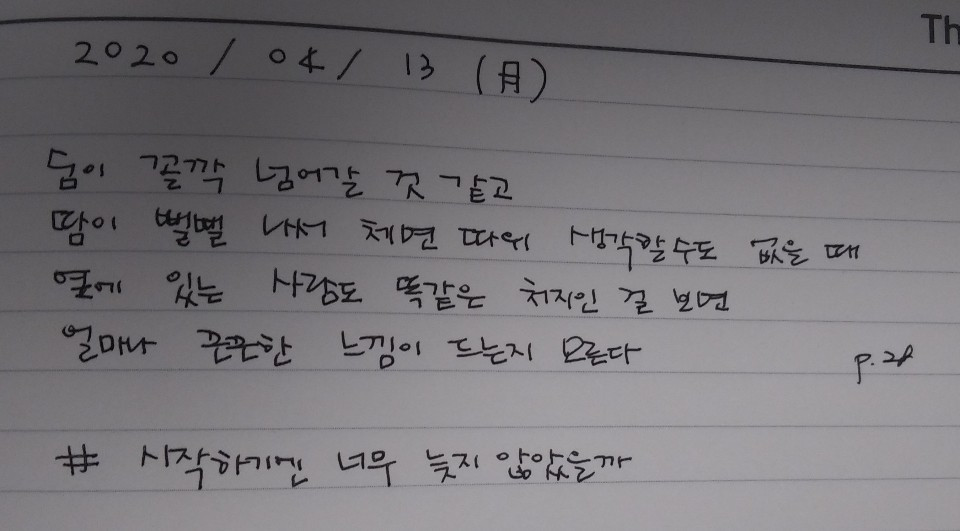 Th
2020 / 04 / 13 (月)
숨이 꼴깍 넘어갈 것 같고
땀이 뻘뻘 나서 체면 따위 생각할수도 없을 때
옆에 있는 사람도 똑같은 처지인 걸 보면
얼마나 든든한 느낌이 드는지 모른다
p.28
# 시작하기엔 너무 늦지 않았을까